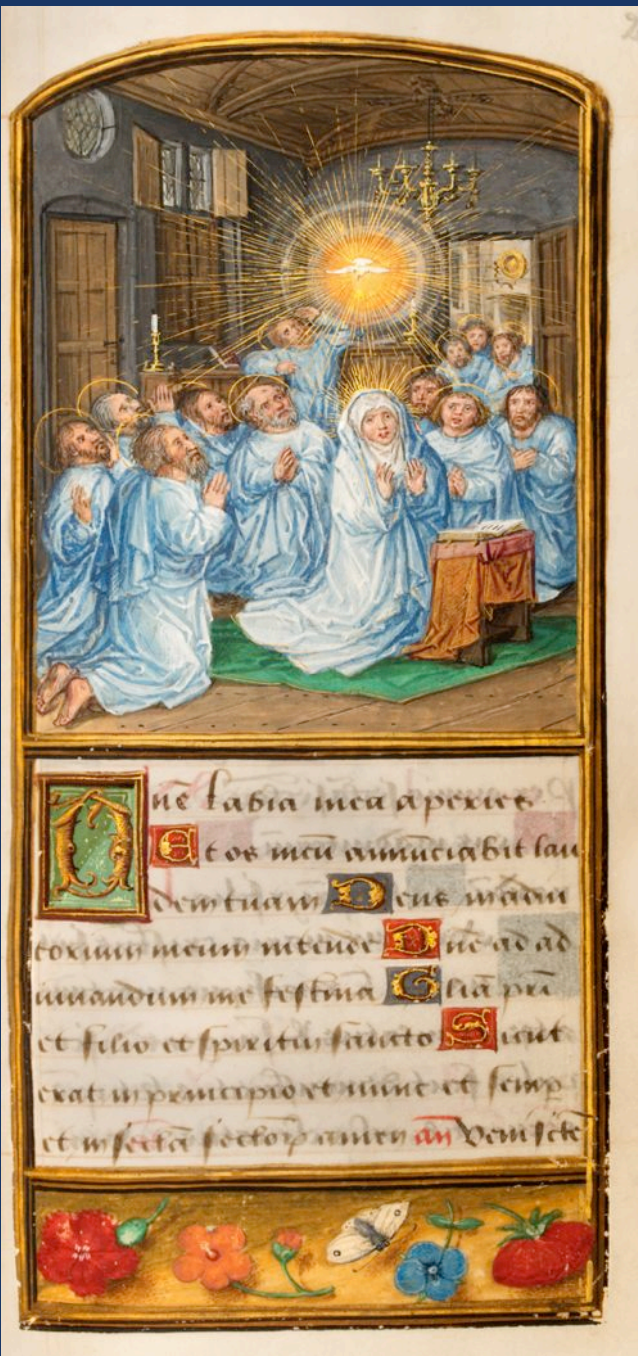 Dñe labia mea aperies
Et os meū annūciabit lau
dem tuam Deus in adiu
torium meum intende Dñe ad ad
iuuandum me festina Glīa pr̄i
et filio et spiritui sancto Sicut
erat in principio et nunc et semp̄
et in sec̄la sec̄lor̄ amen an̄ Veni sc̄te